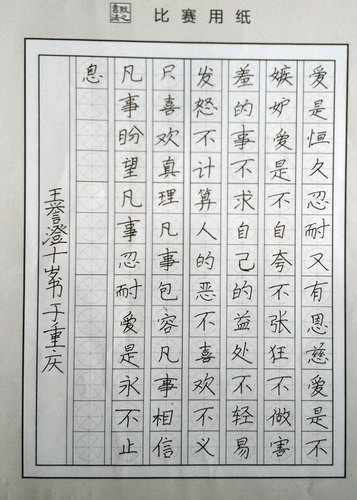 比赛用纸
爱是恒久忍耐又有恩慈爱是不
嫉妒爱是不自夸不张狂不做害
羞的事不求自己的益处不轻易
发怒不计算人的恶不喜欢不义
只喜欢真理凡事包容凡事相信
凡事盼望凡事忍耐爱是永不止
息
王誉澄十岁书于重庆